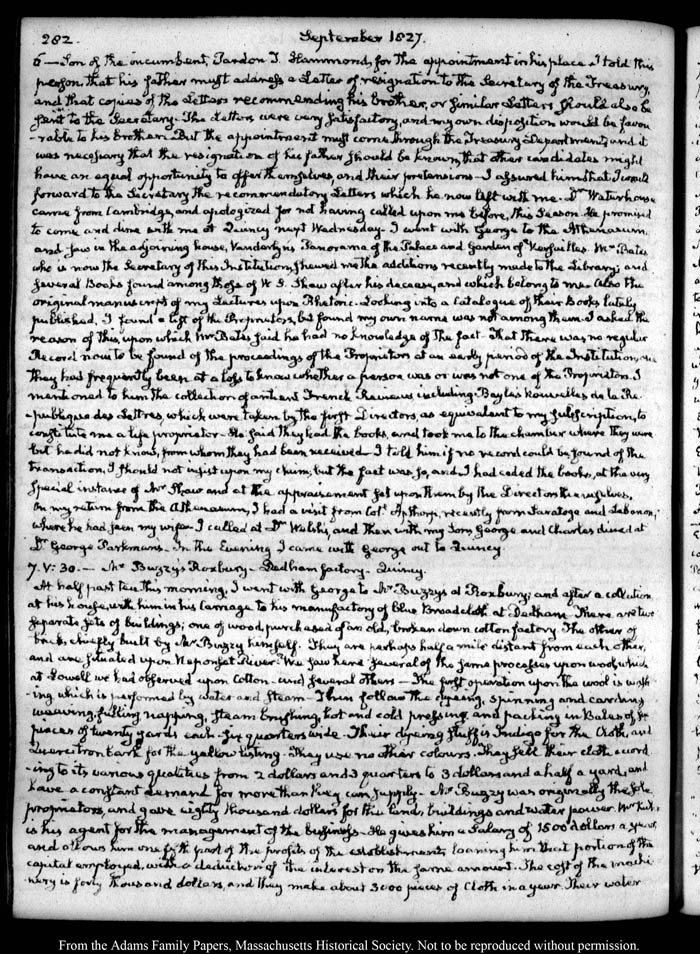 282. September 1827.
6 — Son of the incumbent, Pardon T. Hammond, for the appointment in his place. I told this
person that his father must address a Letter of resignation to the Secretary of the Treasury,
and that copies of the Letters recommending his brother, or similar Letters should also be
sent to the Secretary. The Letters were very satisfactory, and my own disposition would be favou
-rable to his brother. But the appointment must come through the Treasury Department, and it
was necessary that the resignation of his father should be known, that other candidates might
have an equal opportunity to offer themselves, and their pretensions. I assured him that I would
forward to the Secretary the recommendatory Letters which he now left with me. Dr. Waterhouse
came from Cambridge, and apologized for not having called upon me before, this Season. He promised
to come and dine with me at Quincy next Wednesday. I went with George to the Athenaeum,
and saw in the adjoining house, Vanderlyn's Panorama of the Palace and Garden of Versailles. Mr. Bates
who is now the Secretary of this Institution, shewed me the additions recently made to the Library; and
several Books found among those of W. S. Shaw after his decease, and which belong to me. Also the
original manuscript of my Lectures upon Rhetoric. Looking into a Catalogue of their Books lately
published, I found a list of the Proprietors, but found my own name was not among them. I asked the
reason of this, upon which Mr. Bates said he had no knowledge of the fact. That there was no regular
Record now to be found of the proceedings of the Proprietors at an early period of the Institution, and
they had frequently been at a loss to know whether a person was or was not one of the Proprietors. I
mentioned to him the collection of antient French Reviews including Bayle's nouvelles de la Re-
-publique des Lettres, which were taken by the first Directors, as equivalent to my subscription, to
constitute me a life proprietor. He said they had the books, and took me to the chamber where they were
but he did not know, from whom they had been received. I told him if no record could be found of the
transaction, I should not insist upon my claim; but the fact was so, and I had ceded the books, at the very
special instance of Mr. Shaw and at the appraisement set upon them by the Directors themselves.
On my return from the Athenaeum, I had a visit from Coll. Anthorp, recently from Saratoga and Lebanon,
where he had seen my wife. I called at Dr. Welsh's, and then with my Sons George and Charles dined at
Dr. George Parkman's. In the Evening I came with George out to Quincy.
7. V: 30. — Mr. Bussy's Roxbury — Dedham factory. Quincy.
At half past ten this morning, I went with George to Mr. Bussy's at Roxbury; and after a collation
at his house, with him in his Carriage to his manufactory of blue Broadcloth at Dedham. There are two
separate sets of buildings; one of wood, purchased of an old, broken down cotton factory. The other of
brick, chiefly built by Mr. Bussy himself. They are perhaps half a mile distant from each other,
and are situated upon Neponset River. We saw here several of the same processes upon wool, which
at Lowell we had observed upon Cotton — and several others — The first operation upon the wool is wash
-ing which is performed by water and steam. Then follow the dyeing, spinning and carding
weaving, fulling, napping, steam brushing, hot and cold pressing, and packing in Bales of
pieces of twenty yards each. Six quarters wide. Their dyeing stuff is Indigo for the Cloth, and
Quercitron bark for the yellow listing. They use no other colours. They sell their cloth accord
-ing to its various qualities from 2 dollars and 3 quarters to 3 dollars and a half a yard, and
have a constant demand for more than they can supply. Mr. Bussy was originally the sole
proprietor, and gave eighty thousand dollars for the land, buildings and water power. Mr.
is his agent for the management of the business. He gives him a Salary of 1500 dollars a year,
and allows him one fifth part of the profits of the establishment, loaning him that portion of the
capital employed, with a deduction of the interest on the same amount. The cost of the machi
nery is forty thousand dollars, and they make about 3000 pieces of Cloth in a year. Their water
From the Adams Family Papers, Massachusetts Historical Society. Not to be reproduced without permission.